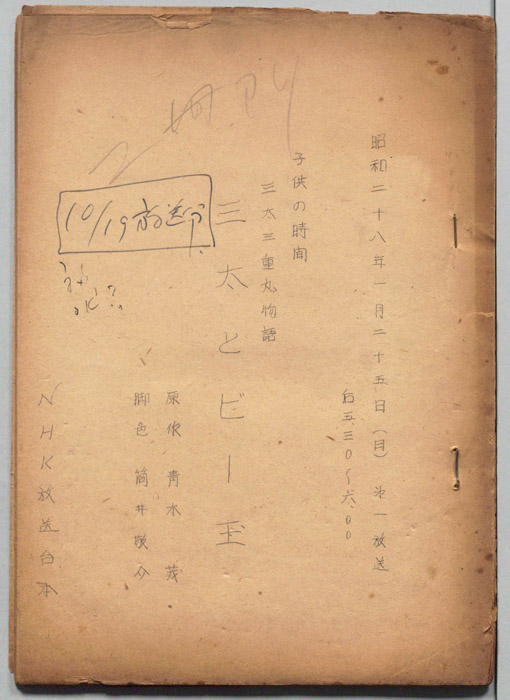 昭和二十八年一月二十五日(日) 第一放送
后五、三〇〜六、〇〇
子供の時間
三太三重丸物語
三太とビー玉
原作 青木茂
脚色 筒井敬介
NHK放送台本
10/19放送分